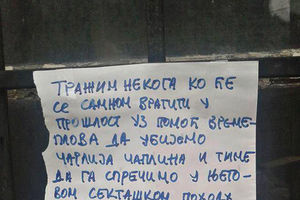 ТРАЖИМ НЕКОГА КО ЋЕ
СЕ САМНОМ ВРАТИТИ У
ПРОШЛОСТ УЗ ПОМОЋ ВРЕМЕ-
ПЛОВА ДА УБИЈЕМО
ЧАРЛИЈА ЧАПЛИНА И ТИМЕ
ДА ГА СПРЕЧИМО У ЊЕГО-
ВОМ СЕКТАШКОМ ПОХОДУ